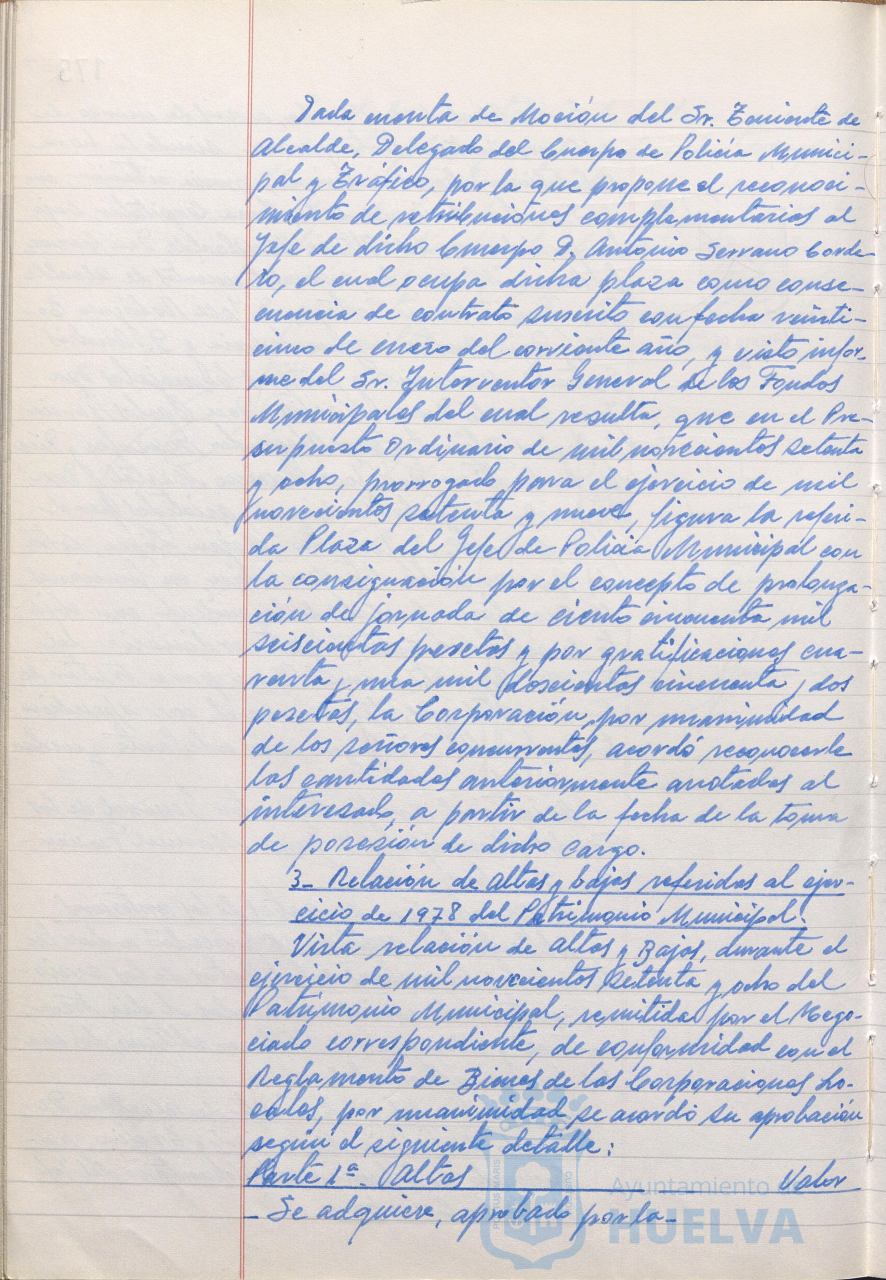 Dada cuenta de Moción del Sr. Teniente de
Alcalde, Delegado del Cuerpo de Policía Munici-
pal y Tráfico, por la que propone el reconoci-
miento de retribuciones complementarias al
Jefe de dicho Cuerpo D. Antonio Serrano Corde-
ro, el cual ocupa dicha plaza como conse-
cuencia de contrato suscrito con fecha veinti-
cinco de enero del corriente año, y visto infor-
me del Sr. Interventor General de los Fondos
Municipales del cual resulta, que en el Pre-
supuesto Ordinario de mil novecientos setenta
y ocho, prorrogado para el ejercicio de mil
novecientos setenta y nueve, figura la referi-
da Plaza del Jefe de Policía Municipal con
la consignación por el concepto de prolonga-
ción de jornada de ciento cincuenta mil
seiscientas pesetas y por gratificaciones cua-
renta y una mil doscientas cincuenta y dos
pesetas, la Corporación, por unanimidad
de los señores concurrentes, acordó reconocerle
las cantidades anteriormente anotadas al
interesado, a partir de la fecha de la toma
de posesión de dicho cargo.
3- Relación de altas y bajas referidas al ejer-
cicio de 1978 del Patrimonio Municipal.
Vista relación de Altas y Bajas, durante el
ejercicio de mil novecientos setenta y ocho del
Patrimonio Municipal, remitida por el Nego-
ciado correspondiente, de conformidad con el
Reglamento de Bienes de las Corporaciones Lo-
cales, por unanimidad se acordó su aprobación
según el siguiente detalle:
Parte 1ª. Altas Valor
- Se adquiere, aprobado por la-
Ayuntamiento de
HUELVA